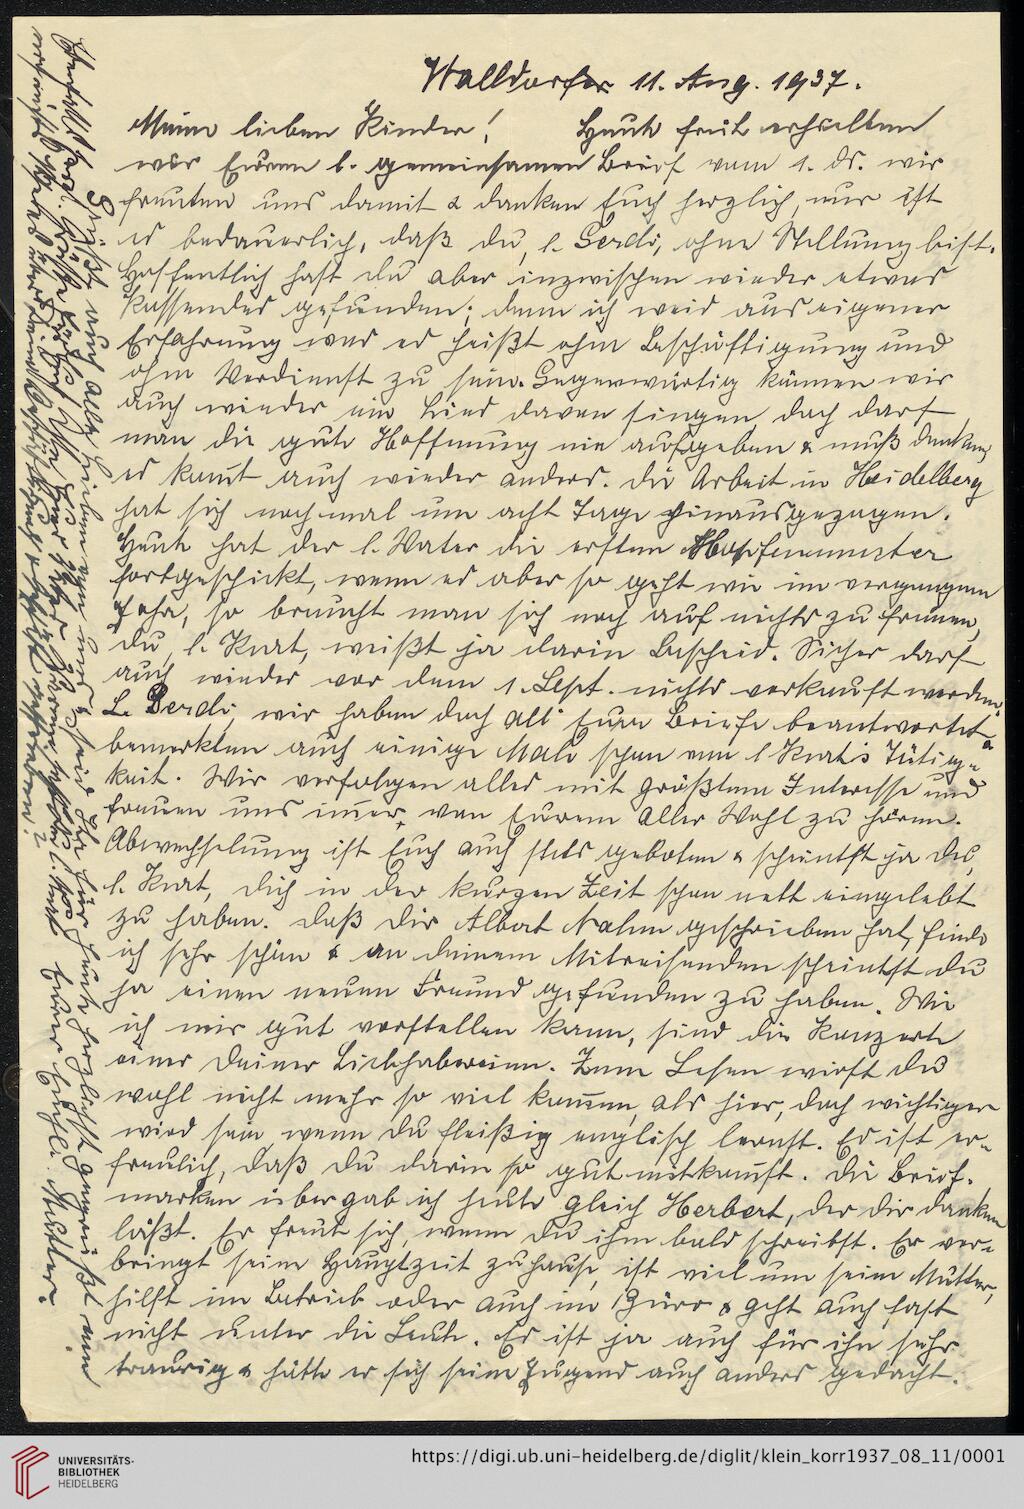 Walldorf 11. Aug. 1937.
Meine lieben Kinder! Heute früh erhielten
wir Euren l. gemeinsamen Brief vom 1. ds. wir
freuten uns damit & danken Euch herzlich, nur ist
es bedauerlich, daß du, l. Gerdi, ohne Stellung bist.
Hoffentlich hast du aber inzwischen wieder etwas
Passendes gefunden; denn ich weis aus eigener
Erfahrung was es heißt ohne Beschäftigung und
ohne Verdienst zu sein. Gegenwärtig können wir
auch wieder ein Lied davon singen, doch darf
man die gute Hoffnung nie aufgeben & muß denken,
es kom̄t auch wieder anders. Die Arbeit in Heidelberg
hat sich nochmal um acht Tage hinausgezogen.
Heute hat der l. Vater die ersten Hopfenmuster
fortgeschickt, wenn es aber so geht wie im vergangenen
Jahr, so braucht man sich noch auf nichts zu freuen,
du, l. Kurt, weißt ja darin Bescheid. Sicher darf
auch wieder vor dem 1. Sept. nichts verkauft werden.
L. Gerdi, wir haben doch all Eure Briefe beantwortet &
bemerkten auch einige Male schon von l. Kurt's Tätig=
keit. Wir verfolgen alles mit größtem Interesse und
freuen uns im̄er, von Eurem Aller Wohl zu hören.
Abwechselung ist Euch auch stets geboten & scheinst ja du,
l. Kurt, dich in der kurzen Zeit schon nett eingelebt
zu haben. Daß dir Albert Nahm geschrieben hat, finde
ich sehr schön & an deinem Mitreisenden scheinst du
ja einen neuen Freund gefunden zu haben. Wie
ich mir gut vorstellen kann, sind die Konzerte
einer deiner Liebhabereien. Zum Lesen wirst du
wohl nicht mehr so viel kom̄en, als hier, doch wichtiger
wird sein, wenn du fleißig englisch lernst. Es ist er=
freulich, daß du darin so gut mitkom̄st. Die Brief=
marken übergab ich heute gleich Herbert, der dir danken
läßt. Er freut sich, wenn du ihm bald schreibst. Er ver=
bringt seine Hauptzeit zuhause, ist viel um seine Mutter,
hilft im Betrieb oder auch im Büro & geht auch fast
nicht unter die Leute. Es ist ja auch für ihn sehr
traurig & hätte er sich seine Jugend auch anders gedacht.
Grüßt auch alle Lieben & seid Ihr für heute herzlichst gegrüßt
Eurer Mutter.
UNIVERSITÄTS-
BIBLIOTHEK
HEIDELBERG
https://digi.ub.uni-heidelberg.de/diglit/klein_korr1937_08_11/0001